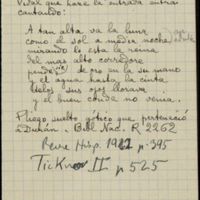 Vidal que hace la entrada
cantando:
A tan alta va la luna
como el sol a media noche
mirando lo esta la reina
del mas alto corredore
peine de oro en la su mano
y el agua hasta la cinta
de los sus ojos llorava
y el buen conde no venia.
Pliego suelto gótico que perteneció
a Durán. Bibl Nac. R 2262
Revue Hisp. p 395
Ticknor II p 525